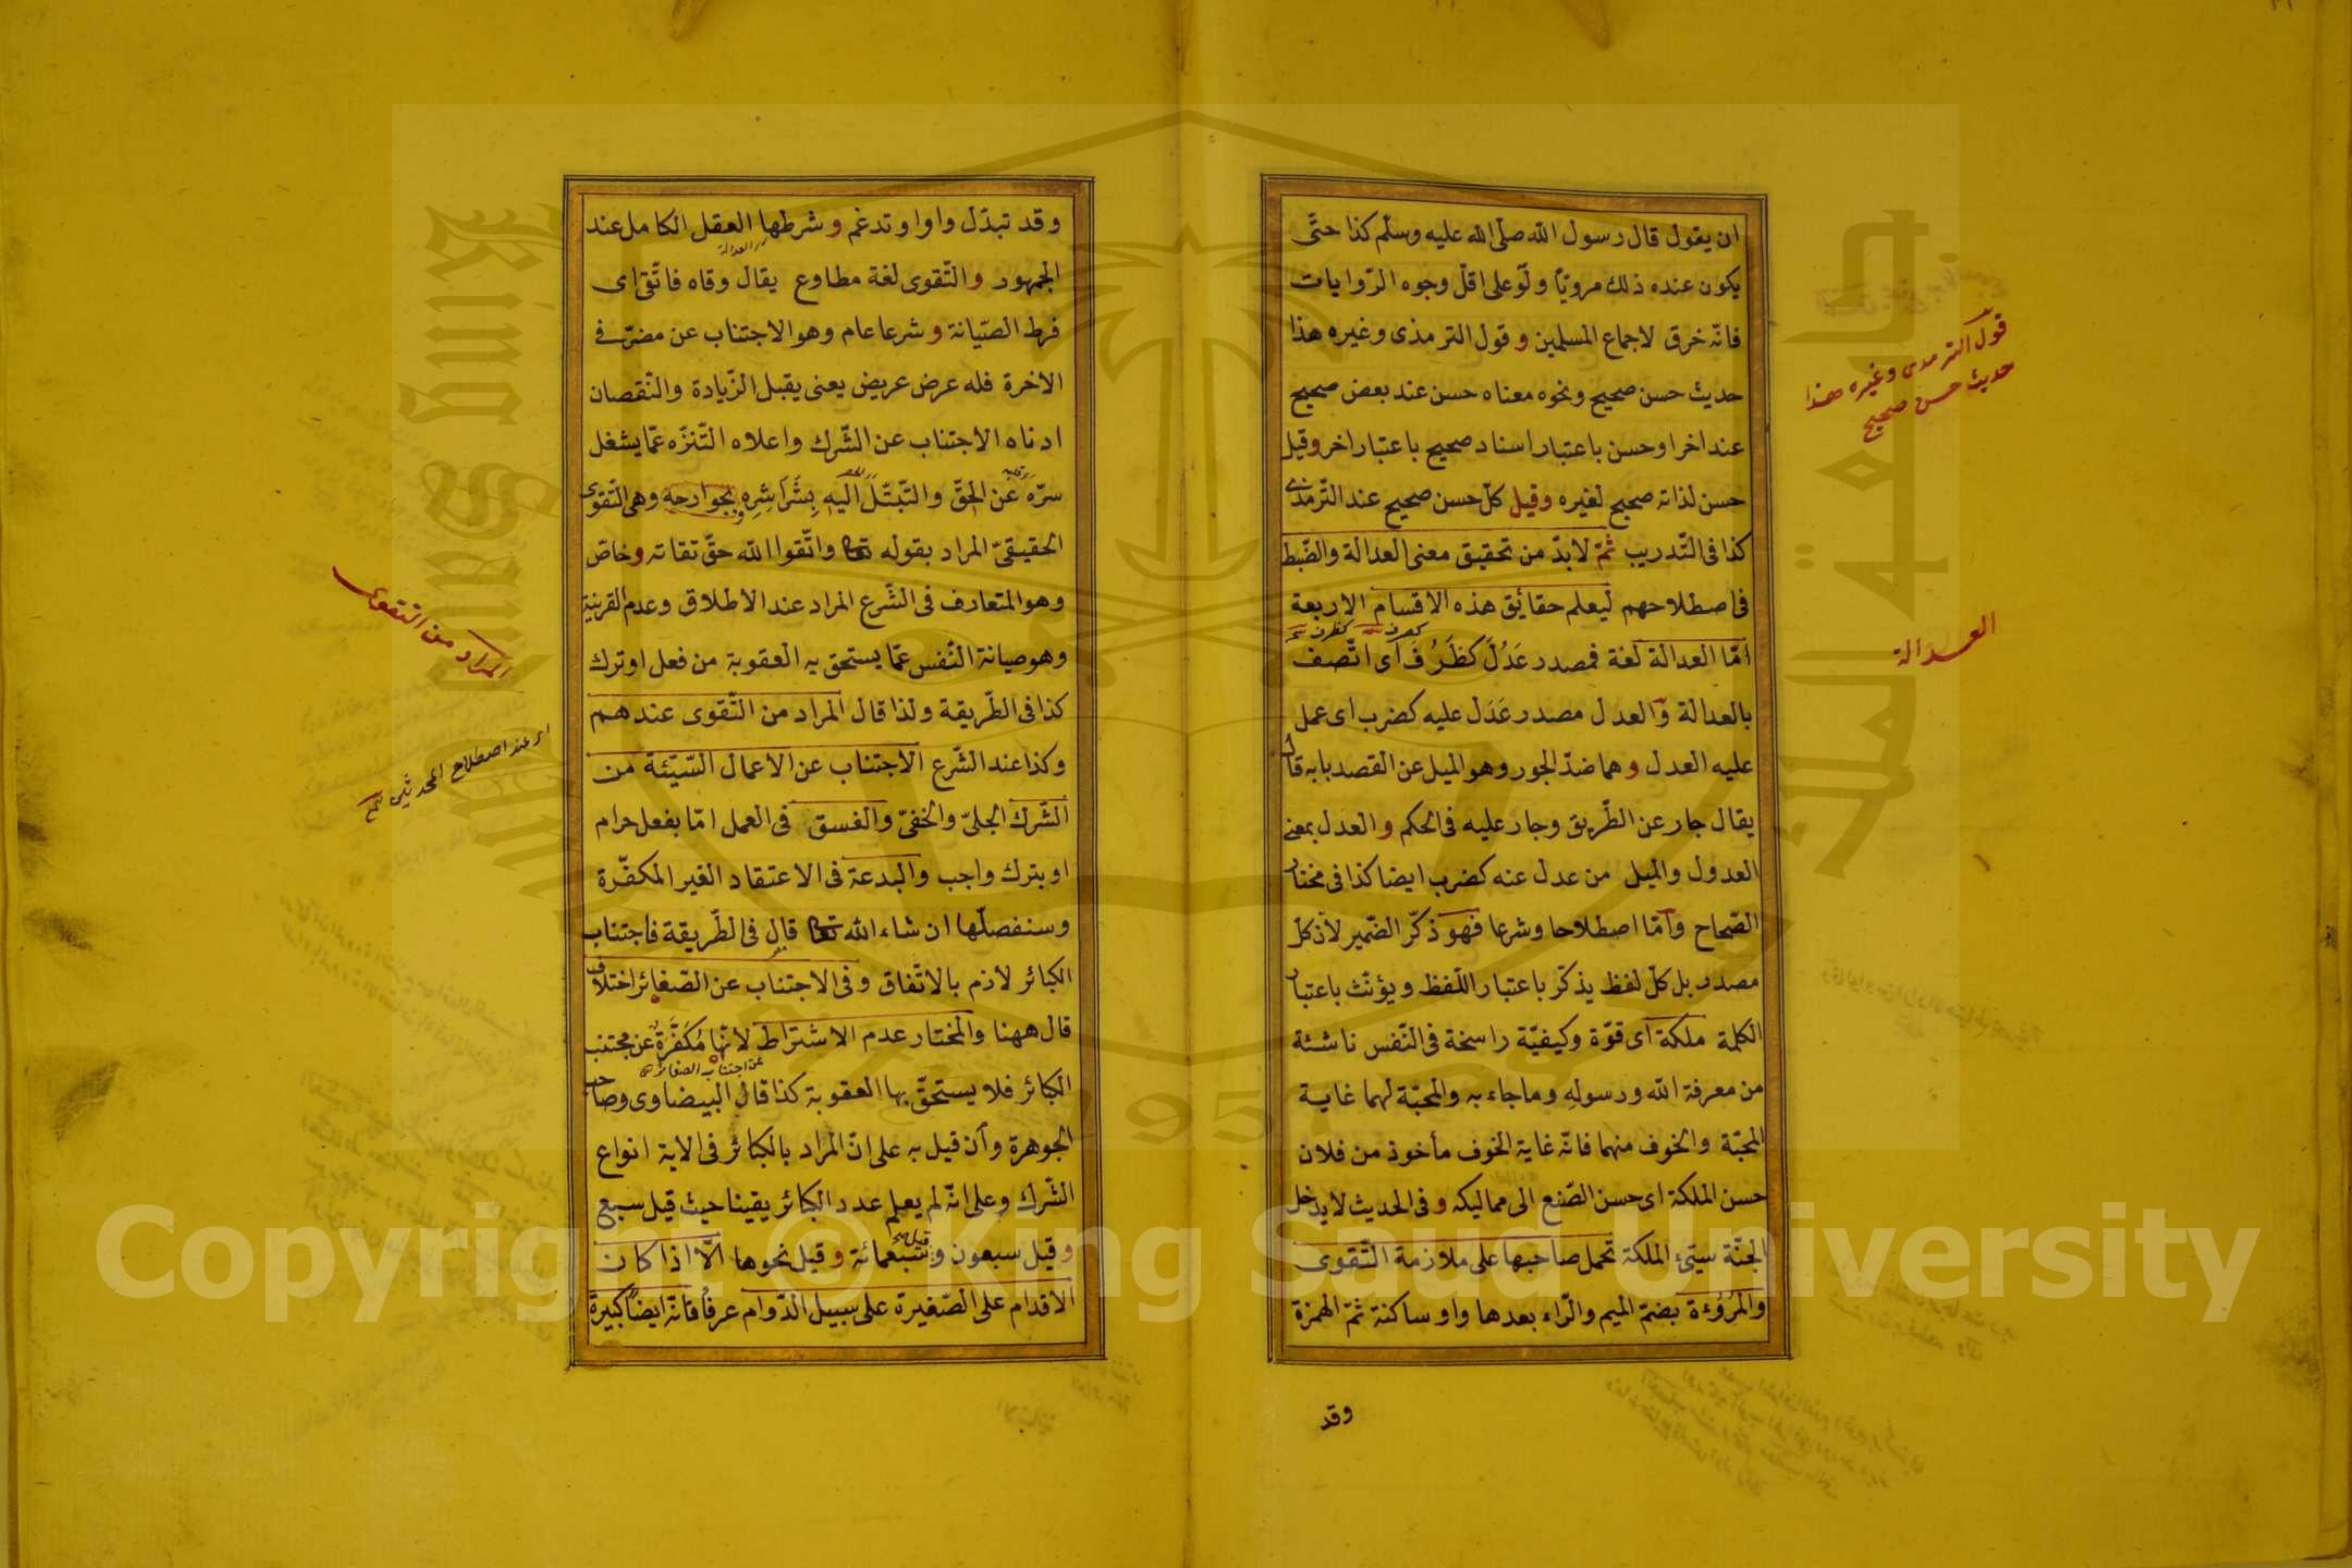 ان يقول قال رسول الله صلى الله عليه وسلم كذا حتى
يكون عنده ذلك مرويّا ولو على اقلّ وجوه الرّوايات
فانّه خرق لاجماع المسلمين وقول الترمذى وغيره هذا
حديث حسن صحيح ونحوه معناه حسن عند بعض صحيح
عند اخر او حسن باعتبار اسناد صحيح باعتبار اخر وقيل
حسن لذاته صحيح لغيره وقيل كلّ حسن صحيح عند التّرمذى
كذا فى التّدريب ثمّ لا بدّ من تحقيق معنى العدالة والضّبط
فى اصطلاحهم ليعلم حقائق هذه الاقسام الاربعة
امّا العدالة لغة فمصدر عَدُلَ كظَرُفَ اى اتّصف
بالعدالة والعدل مصدر عَدَل عليه كضرب اى عمل
عليه العدل وهما ضدّ الجور وهو الميل عن القصد بابه قال
يقال جار عن الطّريق وجار عليه فى الحكم والعدل بمعنى
العدول والميل من عدل عنه كضرب ايضا كذا فى مختار
الصّحاح وامّا اصطلاحا وشرعا فهو ذكّر الضّمير لانّ كلّ
مصدر بل كلّ لفظ يذكّر باعتبار اللّفظ ويؤنّث باعتبار
الكلمة ملكة اى قوّة وكيفيّة راسخة فى النّفس ناشئة
من معرفة الله ورسوله وما جاء به والمحبّة لهما غاية
المحبّة والخوف منهما فانّه غاية الخوف مأخوذ من فلان
حسن الملكة اى حسن الصّنع الى مماليكه وفى الحديث لا يدخل
الجنّة سيّئ الملكة تحمل صاحبها على ملازمة التّقوى
والمُرُوُءة بضمّ الميم والرّاء بعدها واو ساكنة ثمّ الهمزة
وقد
قول الترمدى وغيره هذا
حديث حسن صحيح
العدالة
وقد تبدّل واوا وتدغم وشرطها العقل الكامل عند
الجمهور والتّقوى لغة مطاوع يقال وقاه فاتّقى اى
فرط الصّيانة وشرعا عام وهو الاجتناب عن مضرّ فى
الاخرة فله عرض عريض يعنى يقبل الزّيادة والنّقصان
ادناه الاجتناب عن الشّرك واعلاه التّنزّه عمّا يشغل
سرّه عن الحقّ والتّبتّل اليه بِشَراشِرِه وبجوارحه وهى التّقوى
الحقيقىّ المراد بقوله تعا واتّقوا الله حقّ تقاته وخاصّ
وهو المتعارف فى الشّرع المراد عند الاطلاق وعدم القرينة
وهو صيانة النّفس عمّا يستحق به العقوبة من فعل او ترك
كذا فى الطّريقة ولذا قال المراد من التّقوى عندهم
وكذا عند الشّرع الاجتناب عن الاعمال السّيّئة من
الشّرك الجلىّ والخفىّ والفسق فى العمل امّا بفعل حرام
او بترك واجب والبدعة فى الاعتقاد الغير المكفّرة
وسنفصلّها ان شاء الله تعا قال فى الطّريقة فاجتناب
الكبائر لازم بالاتّفاق وفى الاجتناب عن الصّغائر اختلاف
قال ههنا والمختار عدم الاشتراط لانّها مُكَفَّرة عن مجتنب
الكبائر فلا يستحقّ بها العقوبة كذا قال البيضاوى وصاحب
الجوهرة وان قيل به على انّ المراد بالكبائر فى الاية انواع
الشّرك وعلى انّه لم يعلم عدد الكبائر يقينا حيث قيل سبع
وقيل سبعون وقيل سبعمائة وقيل نحوها الّا اذا كان
الاقدام على الصّغيرة على سبيل الدّوام عرفا فانّه ايضا كبيرة
المراد من التقوى
اى عند اصطلاح المحدثين
Copyright © King Saud University